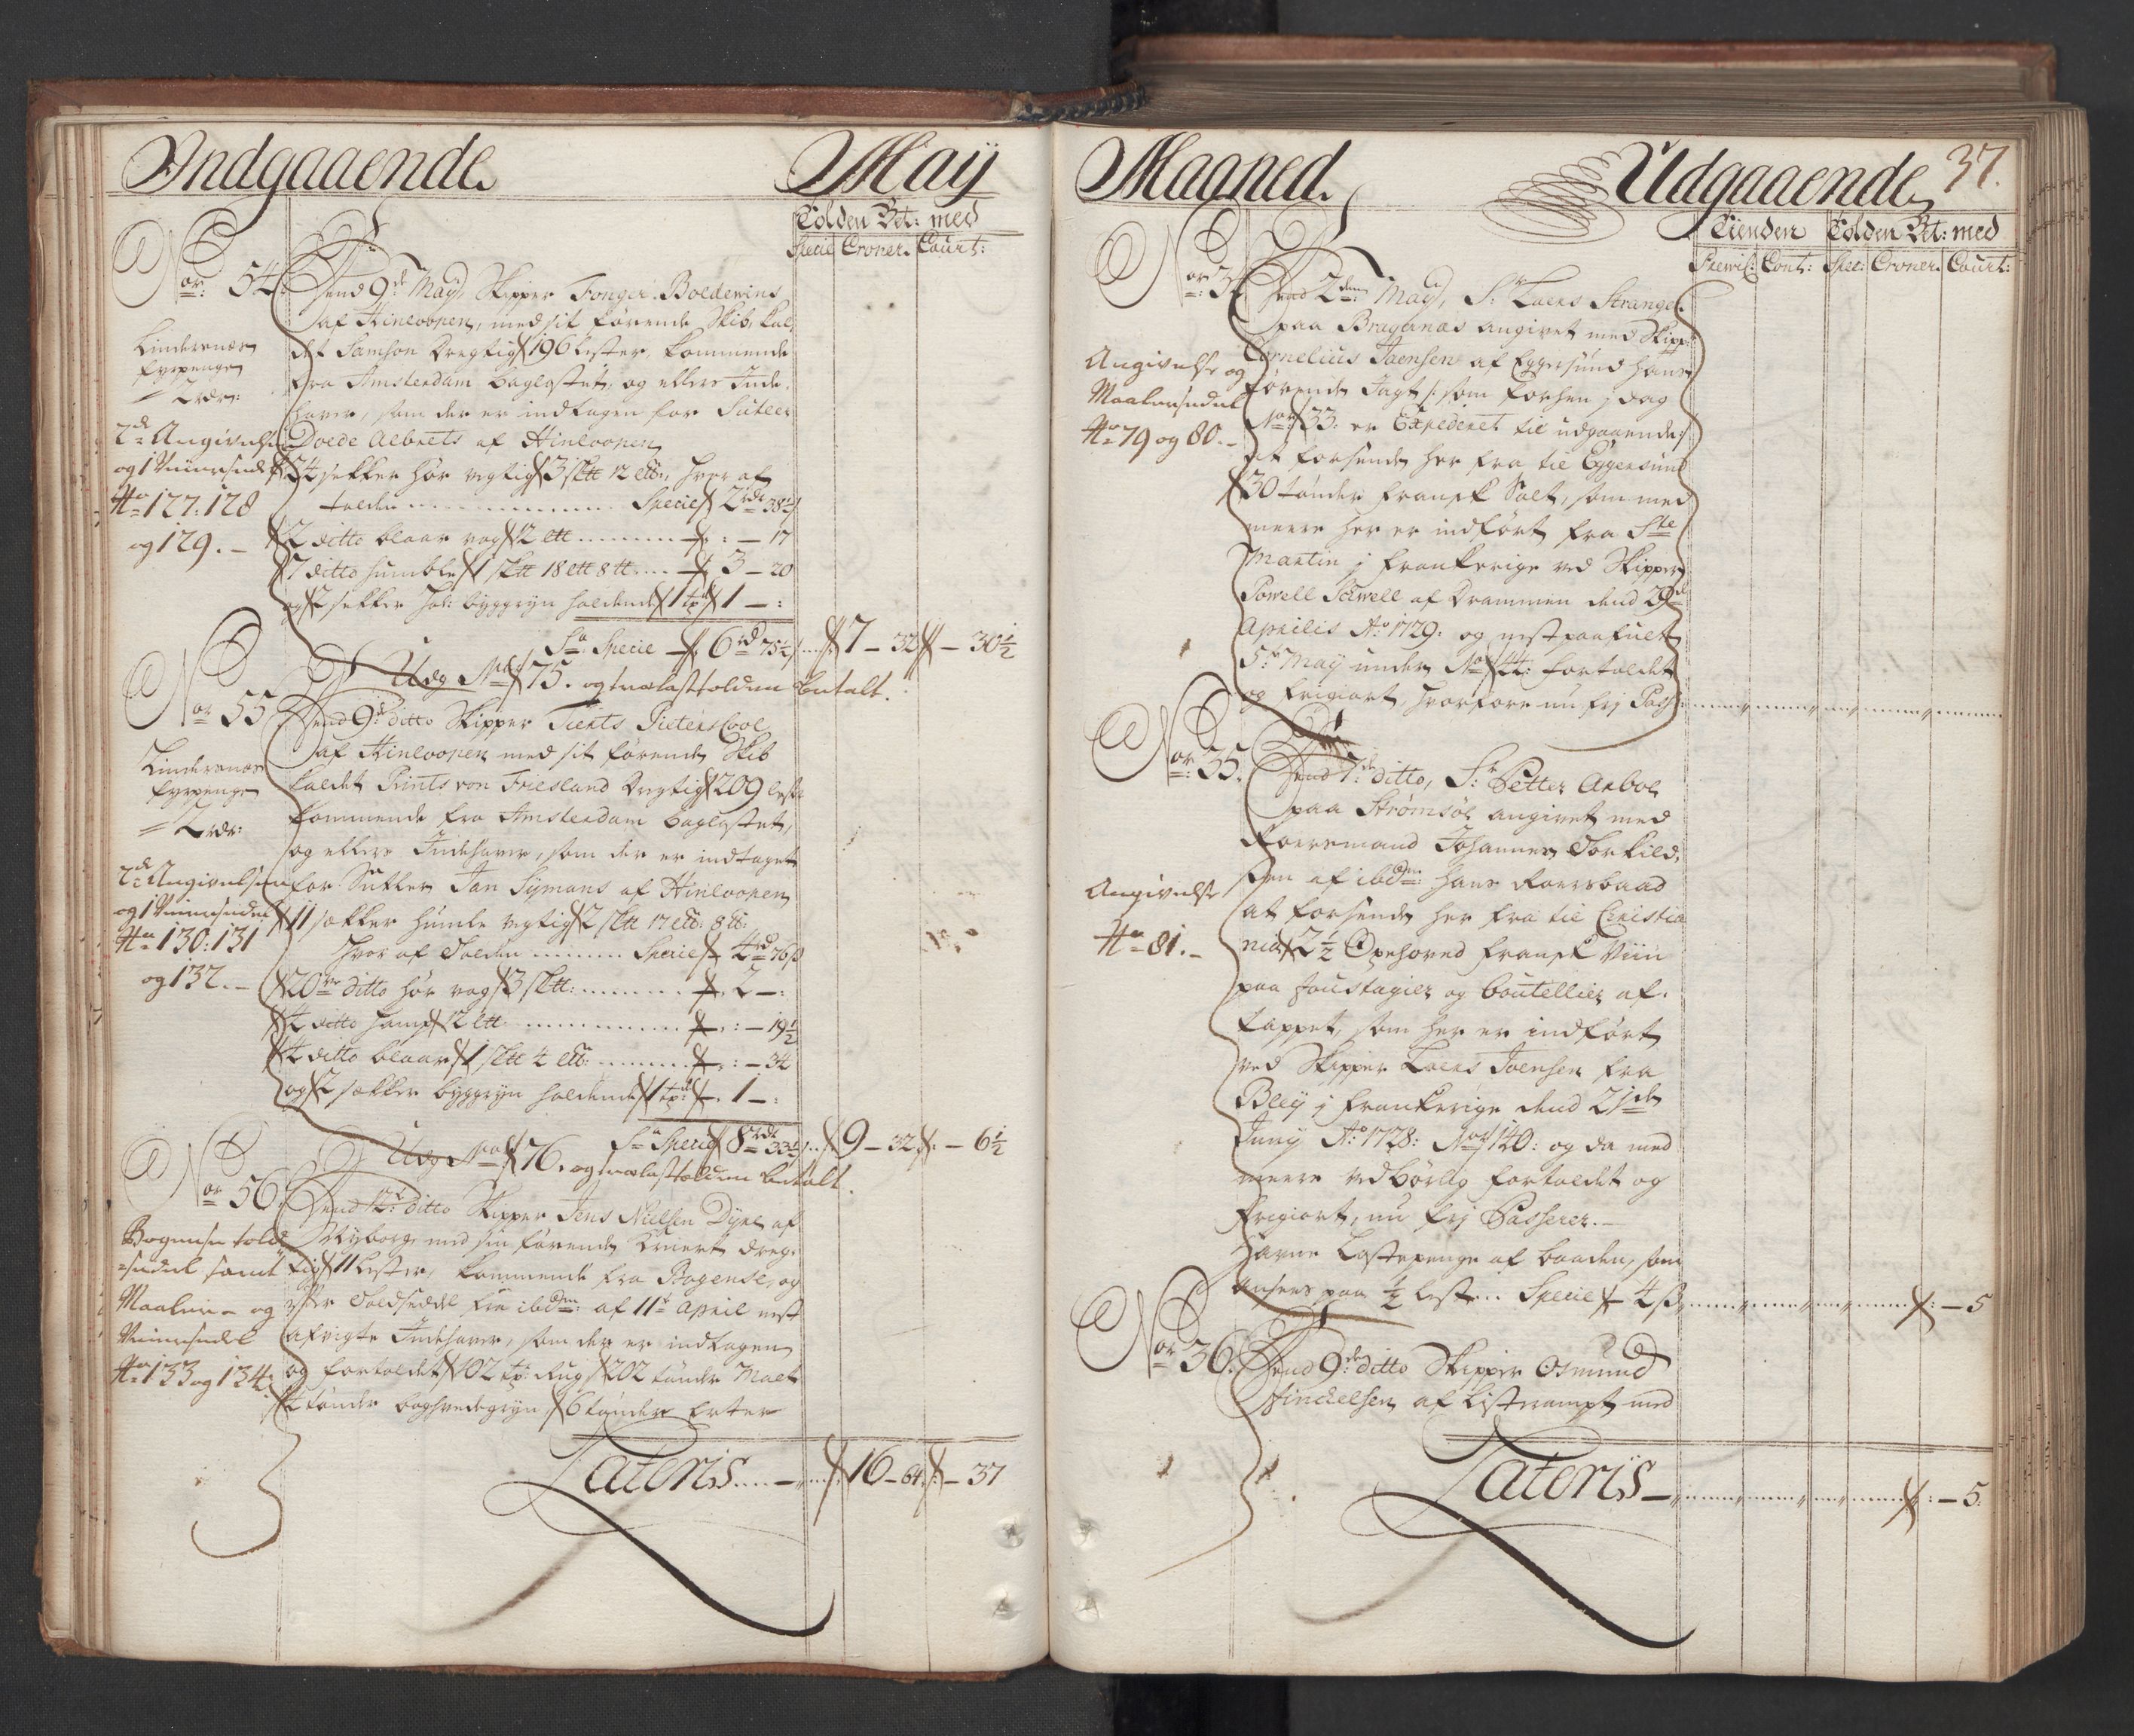 Indgaaende. Maij
Tolden Bet: med
Specie Croner. Court:
Nor: 54.
Dend 9de Maij, Skipper Fonger Boldewins
af Hinloopen, med sit førende Skib, kal-
det Samson dregtig 196 lester, kommende
fra Amsterdam baglastet, og ellers Inde-
haver, som der er indtagen for Suteer
Doede Aebrets af Hinloopen
Lindesnæs
fyrpenge
2 rdr:
2de Angivelser
og 1 Vimersedel
No 127. 128
og 129.
24 sekker hør vegtig 3 skll 12 ll:, hvor af
tolden Specie 2 rdr 38½
2 ditto blaar vog 12 ll : — 17
7 ditto humble 1 skll 18 ll 8 ll 3 — 20
og 2 sekker byggryn holdende 1 tø 1 — :
Sa Specie 6 rd 75½ 7 — 32 — 30½
Udg No 75. og trælasttolden betalt.
Nor 55
Dend 9de ditto Skipper Tierts Pieters Cool
af Hinloopen med sit førende Skib
kaldet Prints von Friesland dregtig 209 lest
kommende fra Amsterdam baglastet,
og ellers Indehaver, som der er indtaget
for Sutler Jan Symans af Hinloopen
Lindesnæs
fyrpenge
2 rdr:
2de Angivelser
og 1 Vimersedel
No 130: 131
og 132.
11 sækker humle vegtig 2 skll 17 ll: 8 ll:
hvor af Tolden Specie 4 rd 76 s
20ve ditto hør vog 3 skll: 2 — :
4 ditto hamp 12 ll : — 19½
4 ditto blaar 1 skll 4 ll: : — 34
og 2 sækker byggryn holdende 1 tø: 1 — :
Sa Specie 8 rdr 33½ 9 — 32 — 6½
Udg No 76. og trælasttolden betalt.
Nor 56.
Dend 12te ditto Skipper Jens Nielsen Dyre af
Nyborg med sin førende Krejert dreg-
tig 11 lester, kommende fra Bogense, og
efter Toldseddel fra ibdm: af 11te April nest
afvigte Indehaver, som der er indtagen
og fortoldet 402 tø: Rug 202 tønder Malt
4 tønder boghvedegryn 6 tønder Erter
Bogense told
sedel samt
Maaler- og
Vimersedel
No 133 og 134.
Lateris 16 — 64 — 37
Maaned. Udgaaende 37.
Tienden Tolden Bet: med
Prewil: Cont: Spec: Croner. Court:
Nor: 34
Dend 2den Maij, Sr Laers Strangel
paa Bragenæs angivet med Skipp
Cornelius Joensen af Eggersund hans
førende Jagt /: som forhen j dag
Nor 33. er Expederet til udgaaende :/
at forsende her fra til Eggersund
30 tønder fransk Salt, som med
meere her er indført fra Ste
Martin j frankerige ved Skipper
Powell Powell af Drammen dend 29de
Aprilis Ao 1729. og nestpaafuelt
5te Maij under No 44: fortoldet
og frigiort, hvorfore nu frj Pass
Angivelse og
Maalersedel
No 79 og 80.
Nor: 35.
Dend 7de ditto, Sr Petter Arbo
paa Strømsøe angivet med
Roersmand Johannes Torkild-
sen af ibdm: hans Roersbaad
at forsende her fra til Christia
nia 2½ Oxehoved fransk Viin
paa foustagier og boutellier af-
tappet, som her er indført
ved Skipper Laers Joensen fra
Bleij j frankerige dend 21de
Junij Ao 1728: Nor 140: og da med
meere vedbørlig fortoldet og
frigiort, nu frj Passerer.
Havne Lastepenge af baaden, som
ansees paa ½ lest Specie 4 s : — 5
Angivelse
No 81.
Nor: 36.
Dend 9de ditto Skipper Osmund
Hinckelsen af Listerampt med
Lateris : — 5.